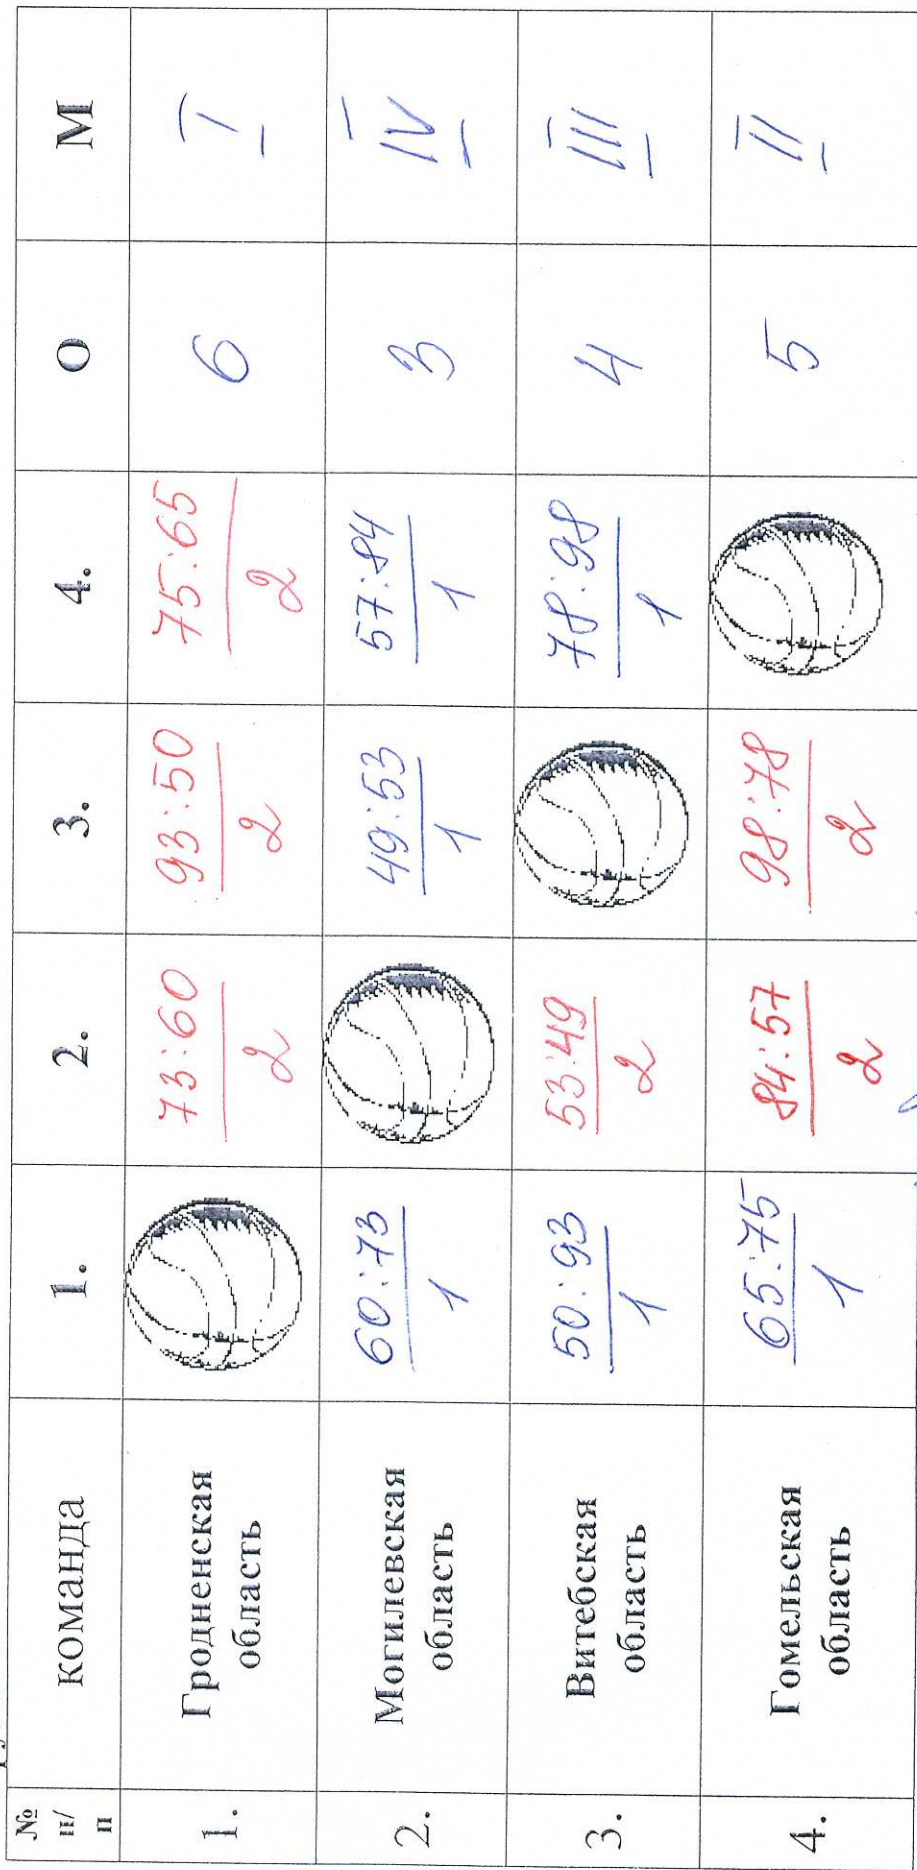 № п/п команда 1. 2. 3. 4. О М
1. Гродненская область 73:60 2 93:50 2 75:65 2 6 I
2. Могилевская область 60:73 1 49:53 1 57:84 1 3 IV
3. Витебская область 50:93 1 53:49 2 78:98 1 4 III
4. Гомельская область 65:75 1 84:57 2 98:78 2 5 II